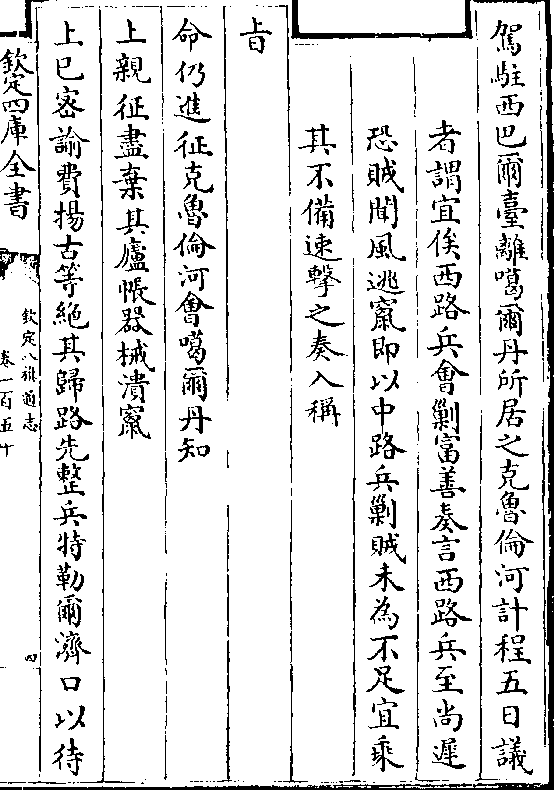 駕駐西巴爾臺離噶爾丹所居之克魯倫河計程五日議
者謂宜俟西路兵會剿富善奏言西路兵至尚遲
恐賊聞風逃竄即以中路兵剿賊未為不足宜乘
其不備速擊之奏入稱
旨
命仍進征克魯倫河會噶爾丹知
上親征盡棄其廬帳器械潰竄
上已密諭費揚古等絶其歸路先整兵特勒爾濟口以待
欽定四庫全書
欽定八旗通志
卷一百五十
四